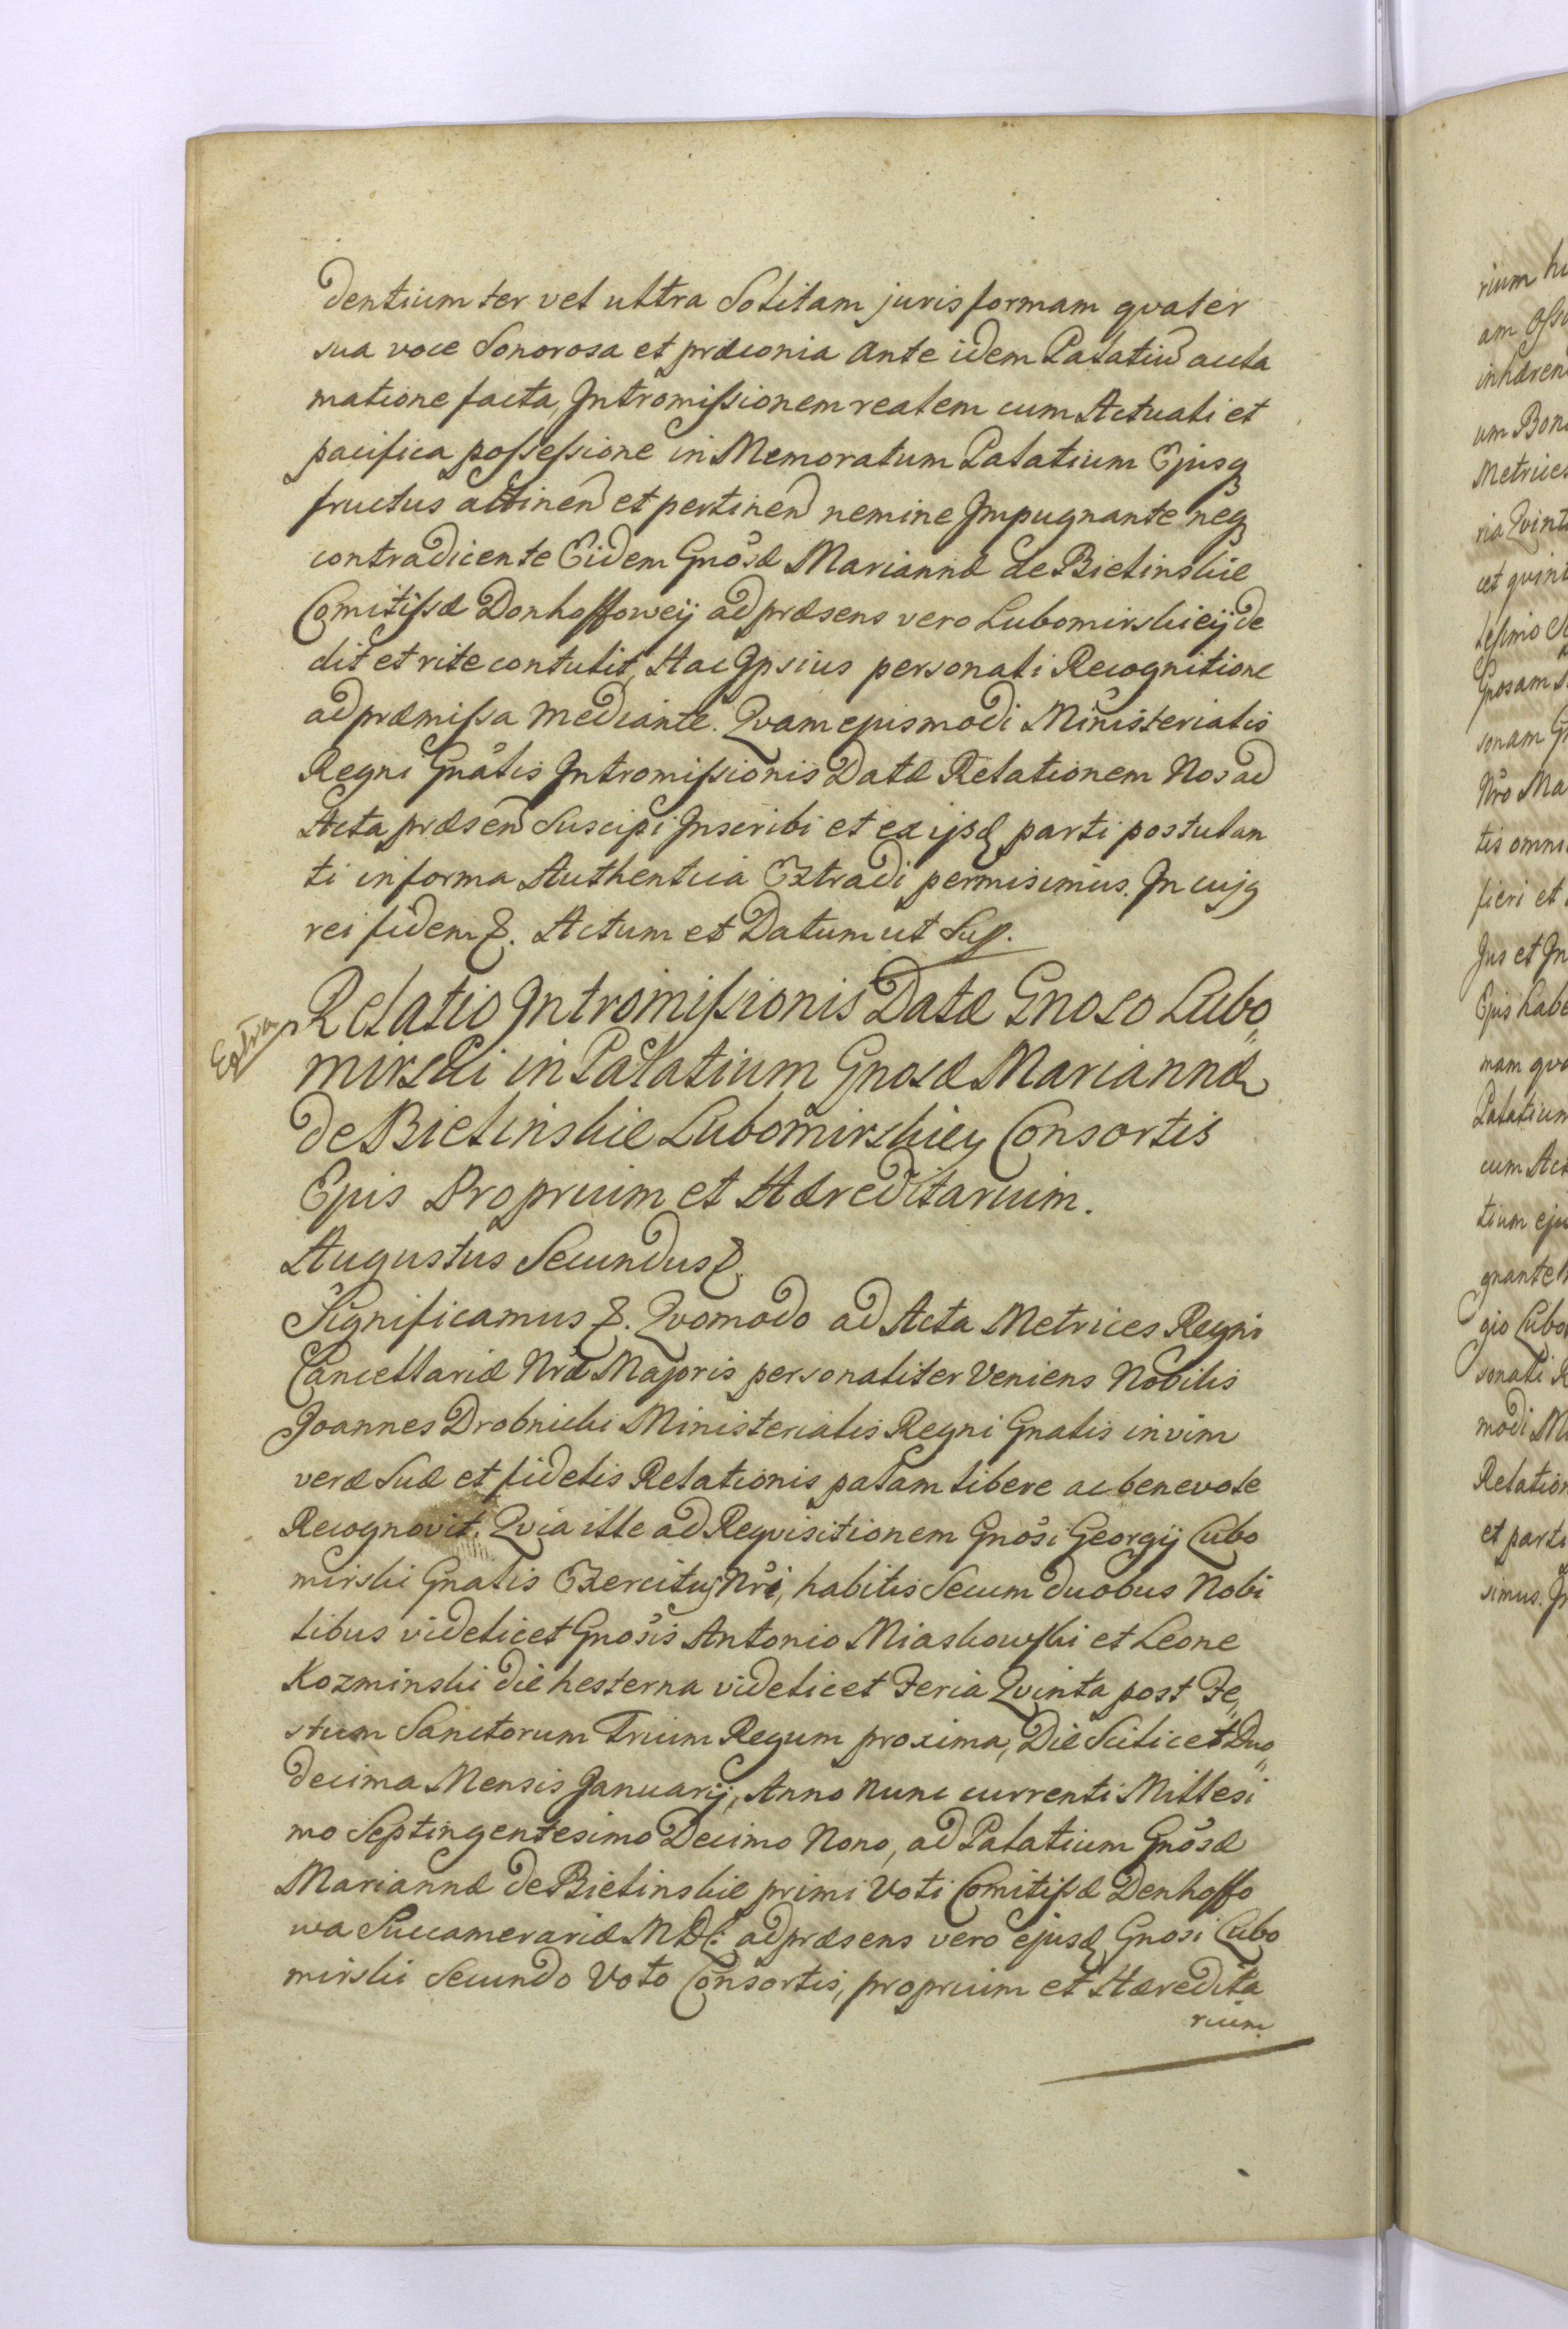 dentium ter vel ultra Solitam juris formam qvater
sua voce Sonorosa et præconia ante idem Palatiū accla
matione facta, Intromissionem realem cum Actuali et
pacifica possessione in Memoratum Palatium Ejusq
fructus attinen et pertinen nemine Impugnante neq
contradicente Eidem Gnosæ Mariannæ de Bielinskie
Comitissæ Donhoffoweij ad præsens vero Lubomirskieij de
dit et rite contulit, Hac Ipsius personali Recognitione
ad præmissa mediante. Qvam ejusmodi Ministerialis
Regni Gnalis Intromissionis Datæ Relationem Nos ad
Acta præsen Suscipi Inscribi et ex ijsd parti postulan
ti in forma Authentica Extradi permisimus. In cujq
rei fidem &. Actum et Datum ut Sup.
Extra
Relatio Intromissionis Datæ Gnoso Lubo„
mirski in Palatium Gnosæ Mariannæ
de Bielinskie Lubomirskiey Consortis
Ejus Proprium et Hæreditarium.
Augustus Secundus &.
Significamus &. Qvomodo ad Acta Metrices Regni
Cancellariæ Nræ Majoris personaliter Veniens Nobilis
Joannes Drobnicki Ministerialis Regni Gnalis in vim
veræ Suæ et fidelis Relationis palam libere ac benevole
Recognovit. Qvia ille ad Reqvisitionem Gnosi Georgij Lubo
mirski Gnalis Exercitus Nri, habitis Secum duobus Nobi
libus videlicet Gnosis Antonio Miaskowski et Leone
Kozminski die hesterna videlicet Feria Qvinta post Fe„
stum Sanctorum Trium Regum proxima, Die Scilicet Duo„
decima Mensis Januarij, Anno nunc currenti Millesi
mo Septingentesimo Decimo Nono, ad Palatium Gnosæ
Mariannæ de Bielinskie primi Voti Comitissæ Denhoffo
wa Succamerariæ M.D.L: ad præsens vero ejusd Gnosi Lubo
mirski Secundo Voto Consortis, proprium et Hæredita
rium
rium
am
inhæren
um Bon
Metrices
ria Qvint
cet qvin
Gnosam
sonam
Nro Ma
tis omni
fieri et
Jus et In
Ejus habe
nam qvo
Palatium
cum Act
tium eju
gnante
gio Lubo
sonali R
modi Mi
Relation
et parti
simus. In